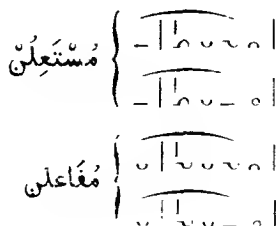 مُسْتَعِلُنْ
مُفَاعلن